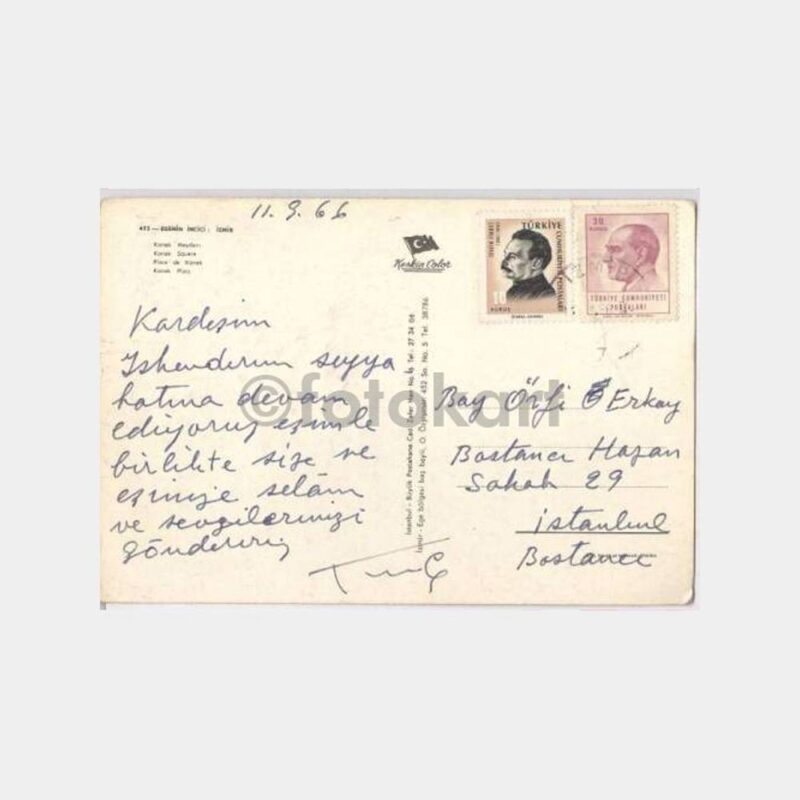 11.9.66
452 — EGENİN İNCİSİ: İZMİR
Konak Meydanı
Konak Square
Place de Konak
Konak Platz
Keskin Color
TÜRKİYE
CUMHURİYETİ POSTALARI
10
KURUŞ
30
KURUŞ
TÜRKİYE CUMHURİYETİ
POSTALARI
Kardeşim
Iskenderun seyya
hatına devam
ediyoruz eşimle
birlikte size ve
eşinize selâm
ve sevgilerimizi
göndeririz
İstanbul - Büyük Postahane Cad. Tel: 27 34 66
İzmir - Ege bölgesi baş bayii, 452 So. No. 5 Tel. 38786
Bay Örfi Erkay
Bostancı Hazan
Sokak 29
İstanbul
Bostancı
©fotokart